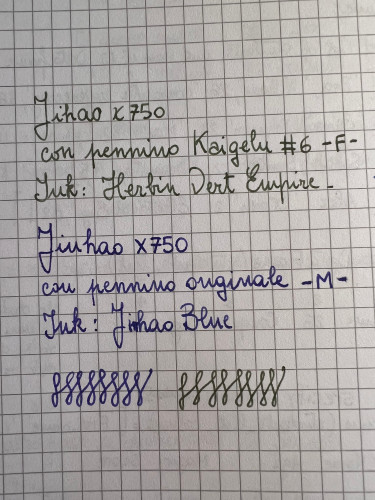 Jihao x750
con pennino Kaigelu #6 -F-
Ink: Herbin Vert Empire -
Jinhao x750
con pennino originale -M-
Ink: Jinhao Blue